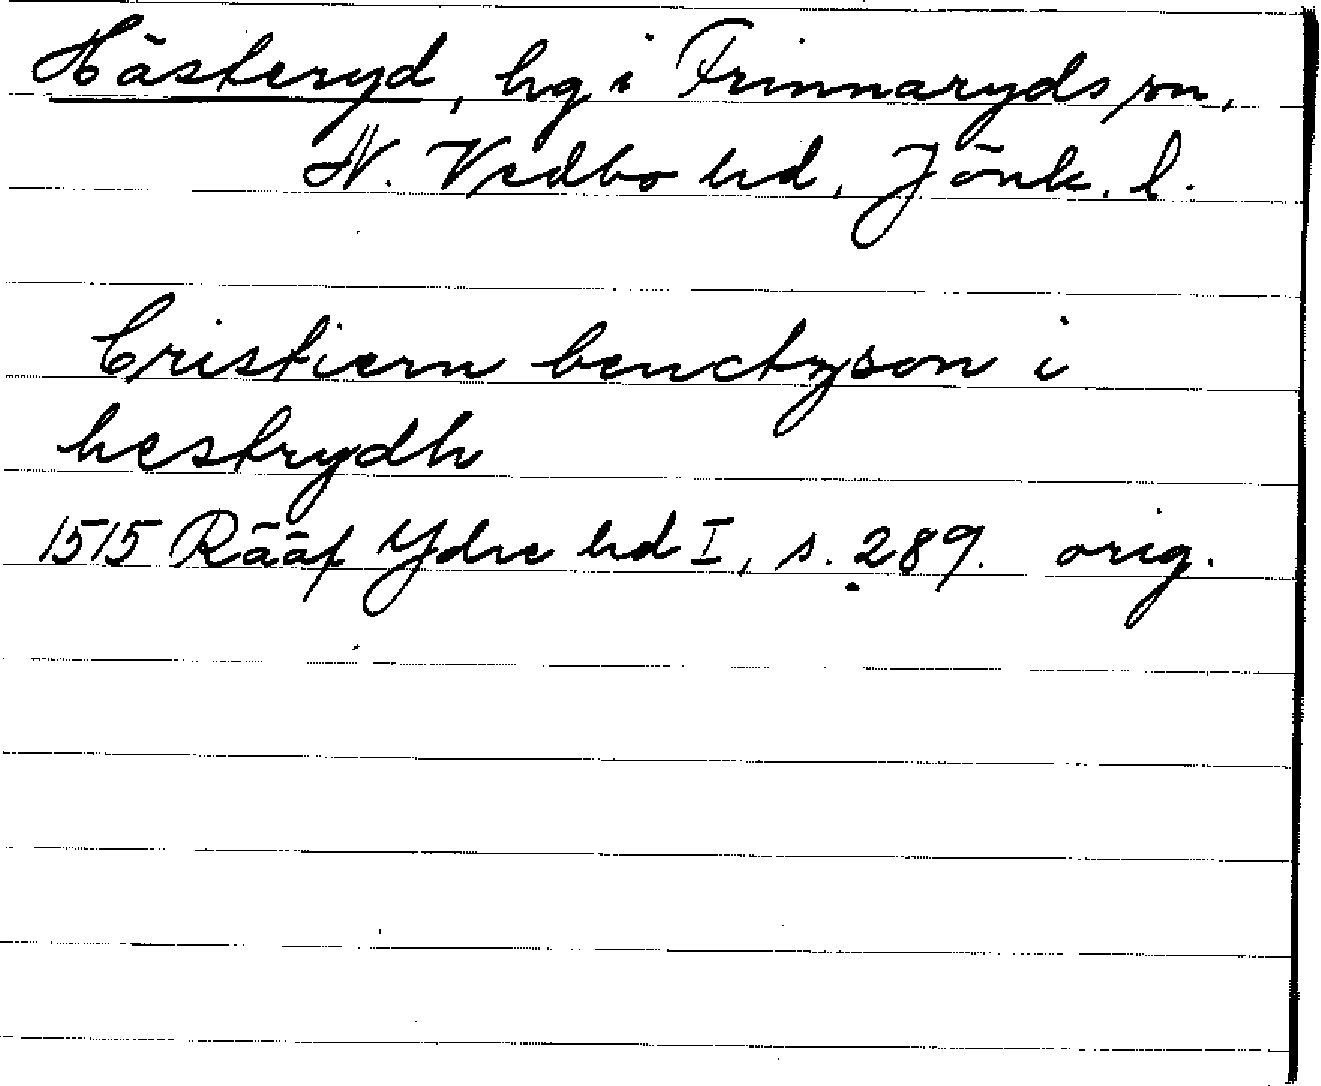 Hästeryd, hg i Frinnaryds sn,
N. Vedbo hd, Jönk. l.
Cristiern benctzson i
hestrydh
1515 Rääf Ydre hd I, s. 289. orig.